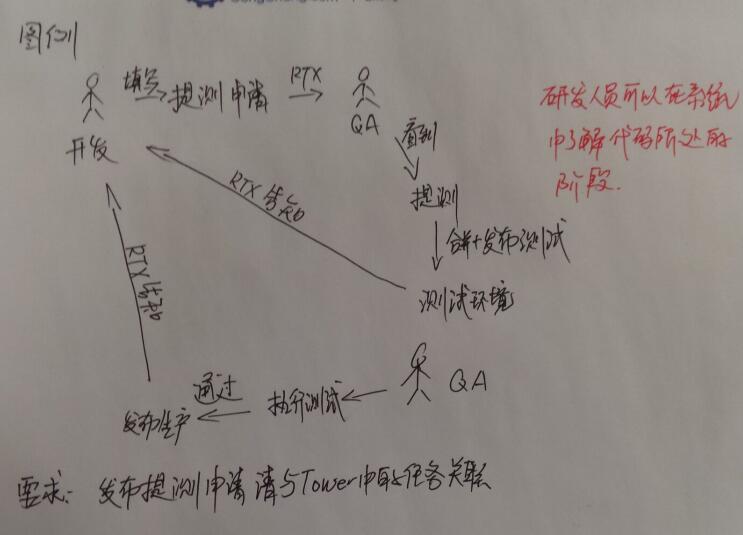 图例
填写
提测申请
RTX
开发
QA
看到
提测
RTX告知
合并+发布测试
测试环境
RTX告知
QA
执行测试
通过
发布生产
研发人员可以在系统
中了解代码所处的
阶段.
要求: 发布提测申请 请与Tower中的任务关联